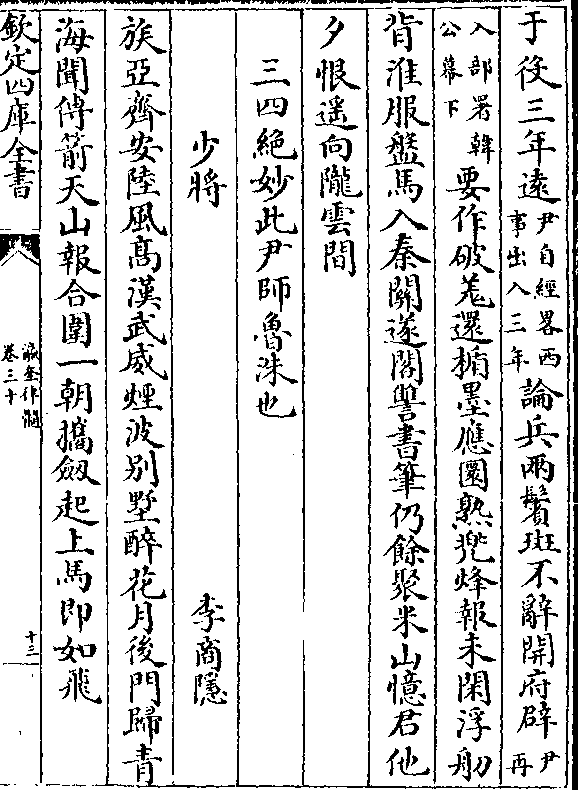 于役三年遠尹自經畧西事出入三年論兵兩鬢斑不辭開府辟尹再
入部署韓公幕下要作破羌還楯墨應圓熟兠烽報未閑浮舠
背淮服盤馬入秦關遂閣讐書筆仍餘聚米山憶君他
夕恨遥向隴雲間
三四絶妙此尹師魯洙也
少將 李商隱
族亞齊安陸風髙漢武威煙波别墅醉花月後門歸青
海聞傳箭天山報合圍一朝攜劔起上馬即如飛
欽定四庫全書
瀛奎律髓
卷三十
十三